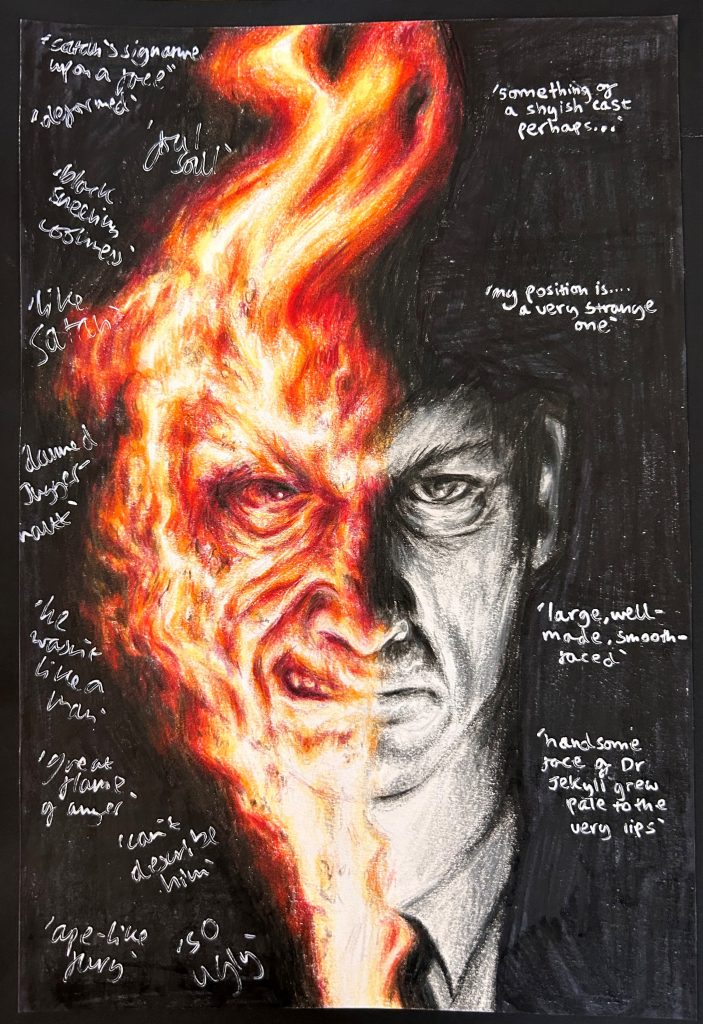 "Satan's signature
upon a face"
'deformed'
'foul
soul'
'black
sneering
coolness'
'like
Satan'
'damned
Jugger-
naut'
'he
wasn't
like a
man'
'great
flame
of anger'
'can't
describe
him'
'ape-like
fury'
'so
ugly'
'something of
a slyish cast
perhaps....'
'my position is....
a very strange
one'
'large, well-
made, smooth-
faced'
'handsome
face of Dr
Jekyll grew
pale to the
very lips'